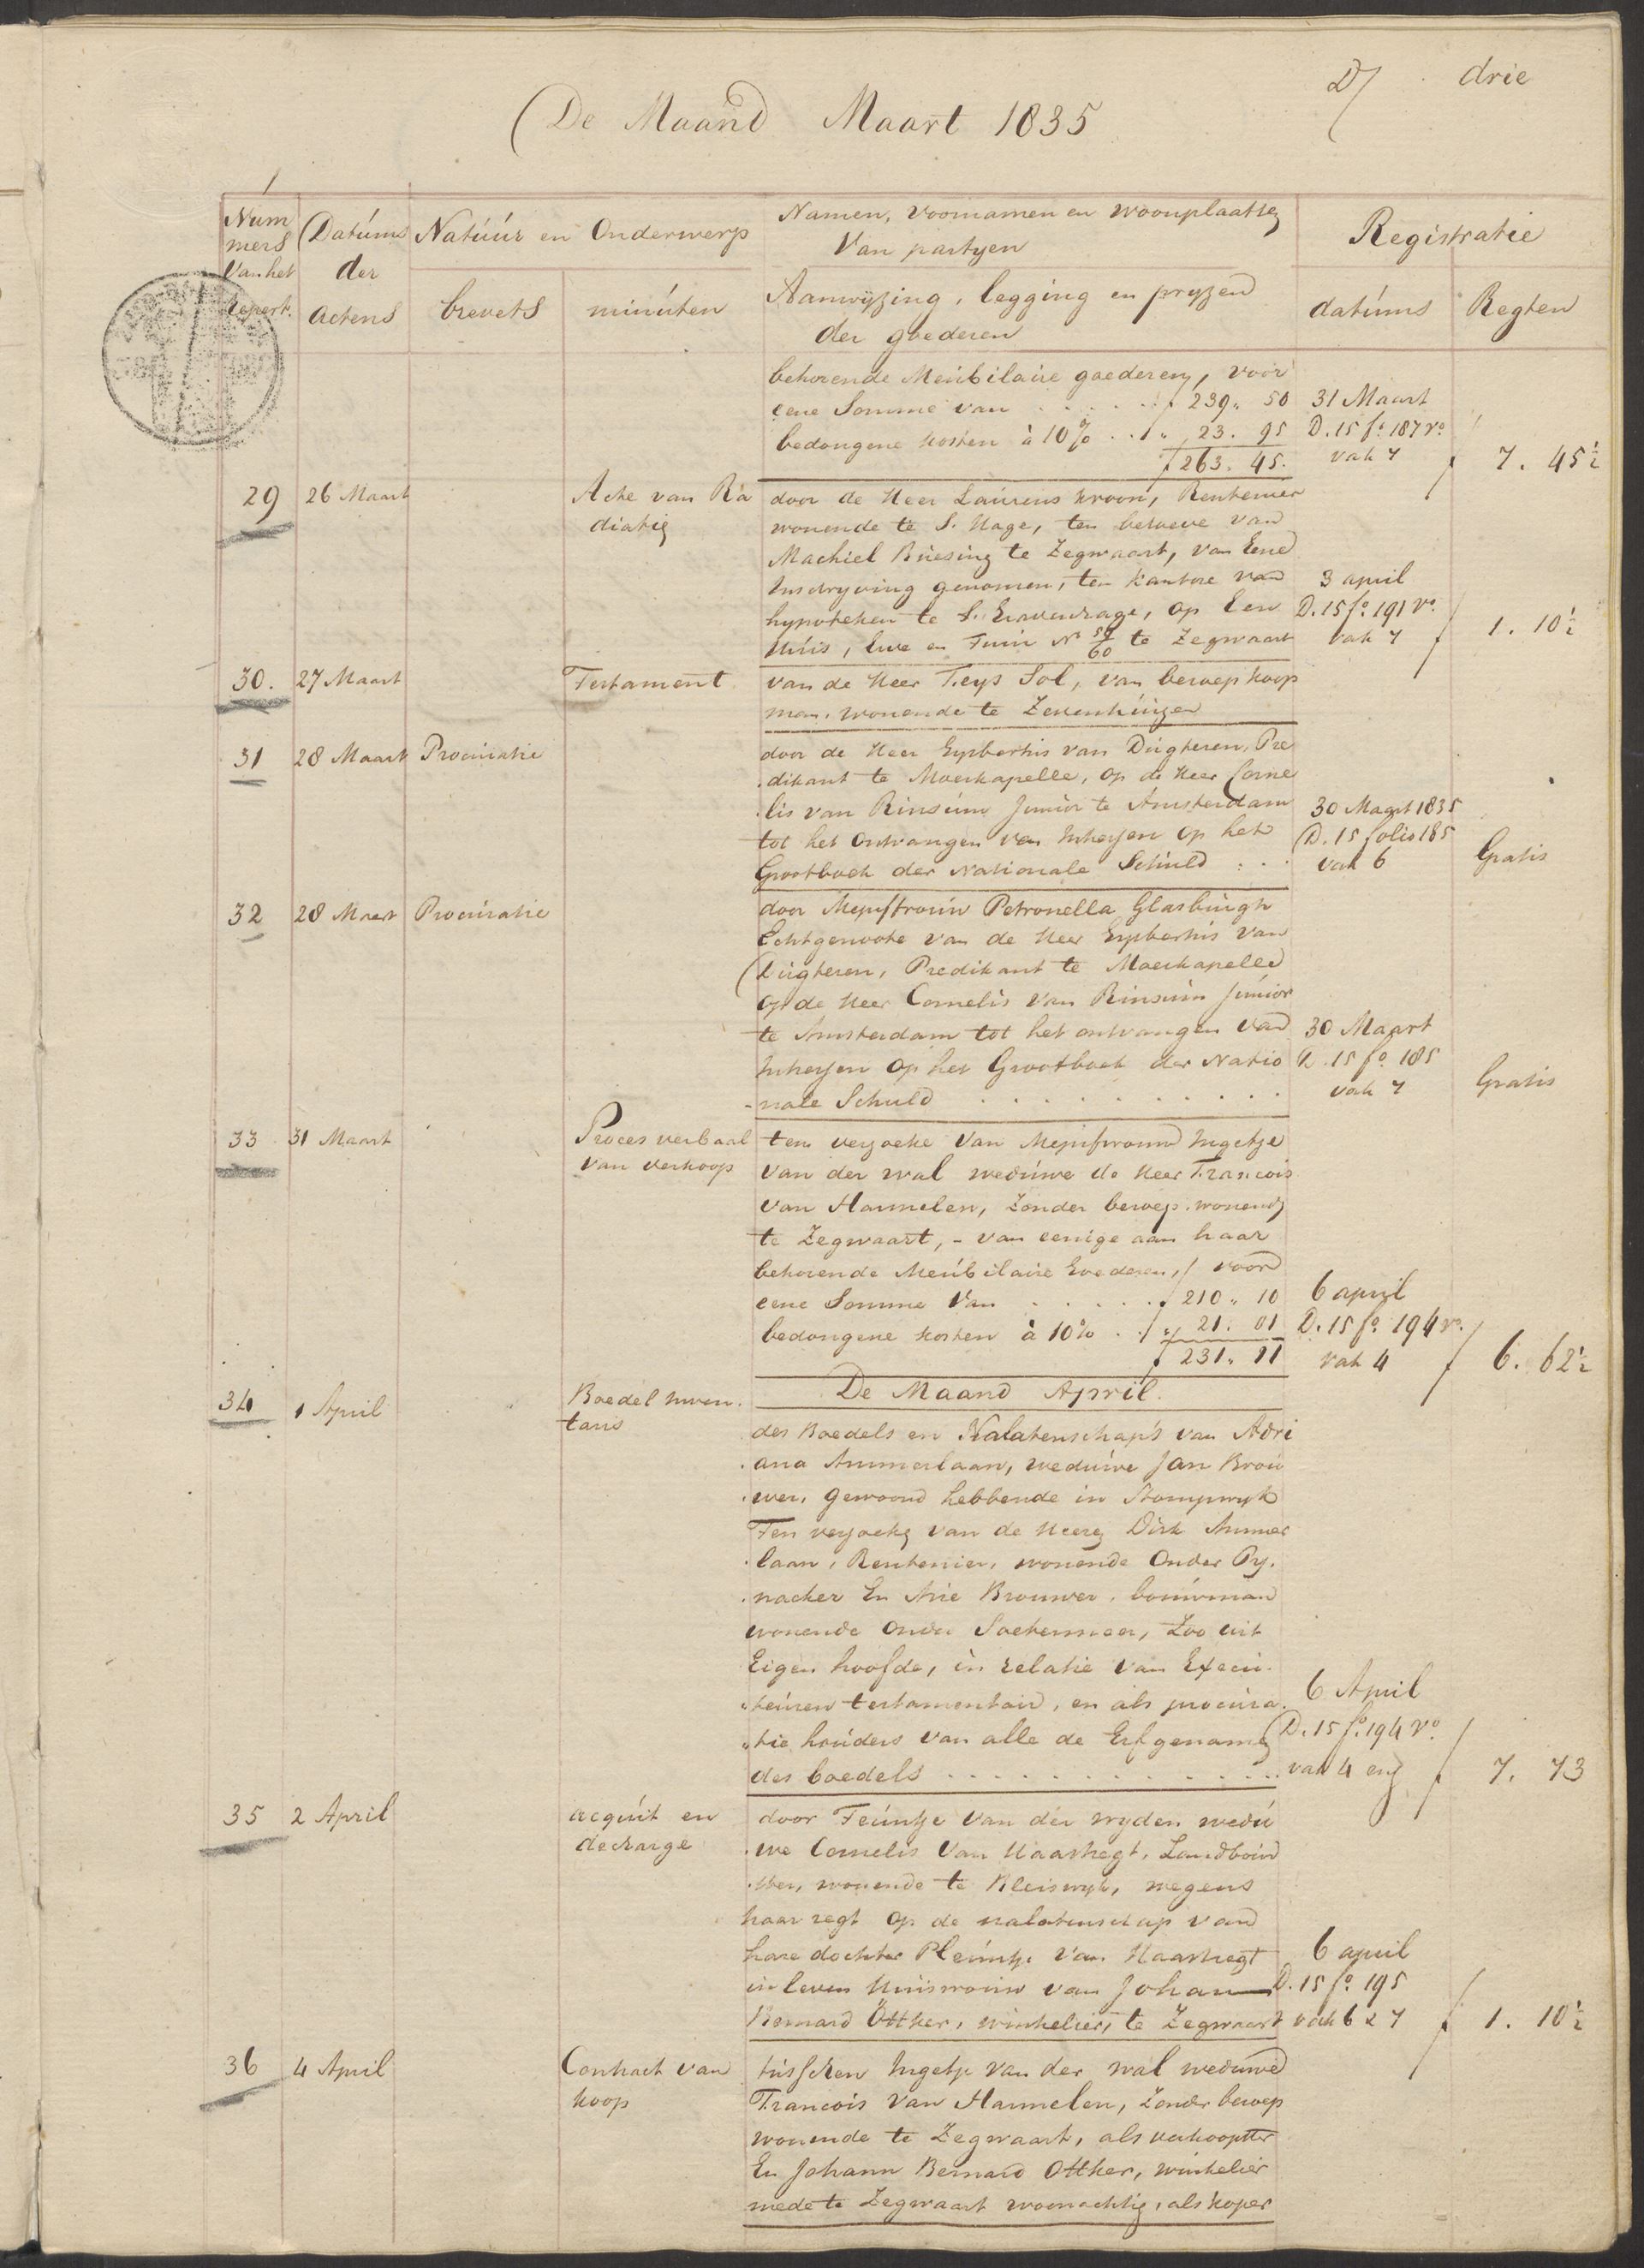 D/ drie
De Maand Maart 1835
Num
mers
van het
repert.
Datums
der
actens
Natuur en Onderwerp
brevets
minuten
Namen, voornamen en woonplaatsen
van partyen
Aanwyzing, legging en pryzen
der goederen
Registratie
datums
Regten
behorende Meubilaire goederen, voor
eene Somme van . . . . . f 239 " 50
31 Maart
bedongene kosten à 10% . . " 23 . 95
D. 15 fo. 187 vo.
f 263 . 45 .
vak 7
f 7 . 45½
29
26 Maart
Acte van Ra
diatie
door de Heer Laurens Kroon, Rentenier
wonende te S. Hage, ten behoeve van
Machiel Buesing te Zegwaart, van Eene
Inschryving genomen, ten kantore van
3 april
hypotheken te S. Gravenhage, op Een
D. 15 fo. 191 vo.
Huis, Erve en Tuin No 59/60 te Zegwaart
vak 7
f 1 . 10½
30.
27 Maart
Testament
van de Heer Teys Sol, van beroep koop
man, wonende te Zevenhuizen
31
28 Maart
Procuratie
door de Heer Eysbertus van Dugteren, Pre
dikant te Moerkapelle, op de Heer Corne
lis van Rinsum Junior te Amsterdam
30 Maart 1835
tot het Ontvangen van Interessen op het
D. 15 folio 185
Grootboek der Nationale Schuld . . .
vak 6
Gratis
32
28 Maart
Procuratie
door Mejuffrouw Petronella Glasbürgh
Echtgenoote van de Heer Eysbertus van
Dugteren, Predikant te Moerkapelle
op de Heer Cornelis van Rinsum Junior
te Amsterdam tot het ontvangen van
30 Maart
Interessen op het Grootboek der Natio
D. 15 fo. 185
nale Schuld . . . . . . . . . . .
vak 7
Gratis
33
31 Maart
Proces verbaal
van verkoop
ten verzoeke van Mejuffrouw Ingetje
van der wal weduwe de Heer Francois
van Harmelen, Zonder beroep, wonende
te Zegwaart, - van eenige aan haar
behorende Meubilaire Goederen, voor
eene Somme van . . . . . f 210 " 10
6 april
bedongene kosten à 10% . . " 21 . 01
D. 15 fo. 194 vo.
f 231 " 11
vak 4
f 6 . 62½
De Maand April.
34
1 April
Boedel Inven
taris
des Boedels en Nalatenschap's van Adri
ana Ammerlaan, weduwe Jan Brou
wer, gewoond hebbende in Stompwyk
Ten verzoeke van de Heeren Dirk Ammer
laan, Rentenier, wonende Onder Py
nacker En Arie Brouwer, bouwman
wonende Onder Soetermeer, Zoo uit
Eigen hoofde, in relatie van Execu
teuren testamentair, en als procura
6 April
tie houders van alle de Erfgenamen
D. 15 fo. 194 vo.
des boedels . . . . . . . . . . . .
vak 4 en
f 7 . 73
35
2 April
acquit en
decharge
door Teuntje van der wyden wedu
we Cornelis van Haastregt, Landbouw
ster, wonende te Bleiswyk, wegens
haar regt op de nalatenschap van
hare dochter Pleuntje van Haastregt
6 april
in leven Huisvrouw van Johann
D. 15 fo. 195
Bernard Ottker, winkelier, te Zegwaart
vak 6 & 7
f 1 . 10½
36
4 April
Contract van
koop
tusschen Ingetje van der wal weduwe
Francois van Harmelen, Zonder beroep
wonende te Zegwaart, als verkoopster
En Johann Bernard Ottker, winkelier
mede te Zegwaart woonachtig, als koper